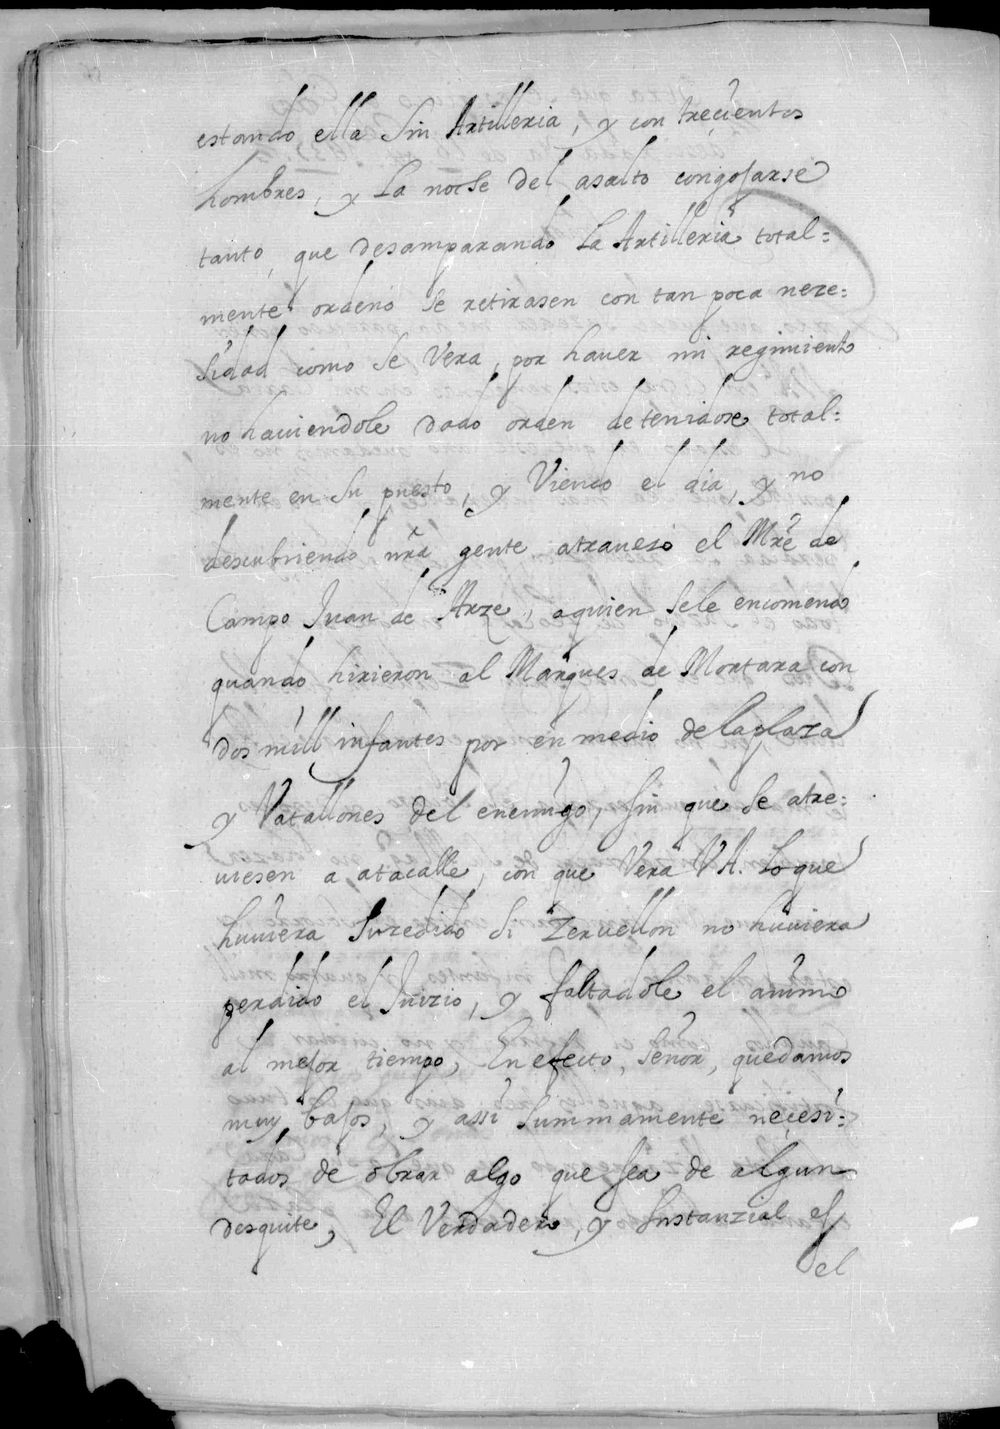 estando ella sin Artilleria, y con treçientos
hombres, y La noche del asalto congojarse
tanto, que desamparando La Artilleria total=
mente ordeno se retirasen con tan poca neze=
sidad como se Vera, por haver mi regimiento
no haviendole dado orden detenidose total=
mente en su puesto, y Viendo el dia, y no
descubriendo nra gente atraueso el Mre de
Campo Juan de Arze, aquien sele encomendo
quando hirieron al Marques de Mortara con
dos mill infantes por en medio de la plaza
y Vatallones del enemigo, sin que se atre=
uiesen a atacalle, con que Vera VA. Lo que
huuiera suzedido si Zeruellon no huuiera
perdido el Juizio, y faltadole el animo
al mejor tiempo, En efecto, señor, quedamos
muy bajos, y assi summamente neçesi=
tados de obrar algo que sea de algun
desquite, El Verdadero, y sustanzial es
el